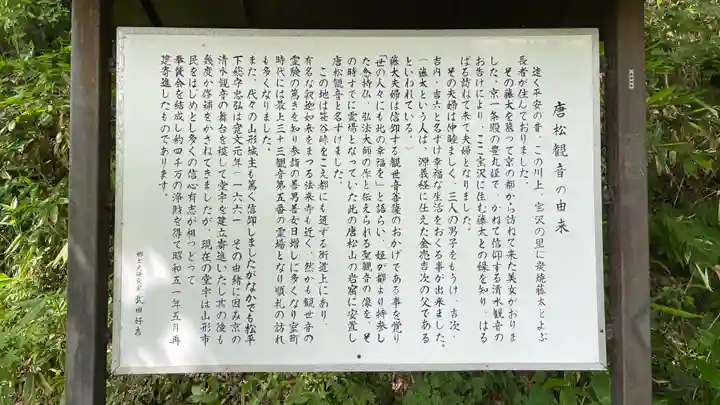 唐松観音の由来
遠く平安の昔、この川上、宝沢の里に炭焼藤太とよぶ
長者が住んでおりました。
その藤太を慕って京の都から訪ねて来た美女がおりま
した。京一条殿の豊丸姫で、かねて信仰する清水観音の
お告げにより、ここ宝沢に住む藤太との縁を知り、はる
ばる訪ねて来て夫婦となりました。
その夫婦は仲睦まじく、三人の男子をもうけ、吉次、
吉内、吉六と名ずけ幸福な生活をおくる事が出来ました。
(藤太という人は、源義経に仕えた金売吉次の父である
といわれている。)
藤太夫婦は信仰する観世音菩薩のおかげである事を覚り
「世の人々にも此の幸福を」と語らい、姫が都より持参し
た念持仏、弘法大師の作と伝えられる聖観音の像を、そ
の時すでに霊場となっていた此の唐松山の岩窟に安置し
唐松観音と名ずけました。
この地は笹谷峠をこえ都にも通ずる街道上にあり、
有名な釈迦如来をまつる法来寺も近く、然かも観世音の
霊験の篤きを知り参詣の善男善女日増しに多くなり室町
時代には最上三十三観音第五番の霊場となり順礼の訪れ
も多くなりました。
また、代々の山形城主も篤く信仰しましたがなかでも松平
下総守忠弘は寛文元年(一六六一)その由緒に因み京の
清水観音の舞台を模して堂宇を建立寄進いたし其の後も
幾度か修補をかさねてきましたが、現在の堂宇は山形市
民をはじめとし多くの信心有志が相つどって
奉賛会を結成し約四千万の浄財を得て昭和五一年五月再
建寄進したものであります。
郷土史研究家 武田好吉